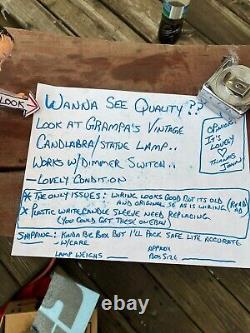 LOOK
WANNA SEE QUALITY??
LOOK AT GRAMPA'S VINTAGE
CANDLABRA/STATUE LAMP..
WORKS W/DIMMER SWITCH..
-LOVELY CONDITION
OPINION:
IT'S
LOVELY
THE ONLY ISSUES: WIRING LOOKS GOOD BUT ITS OLD
AND ORIGINAL SO AS IS WIRING (READ
AD)
X PLASTIC WHITE CANDLE SLEEVE NEED REPLACING
(YOU COULD GET THESE ON EBAY)
SHIPPING: KINDA BE BOX BUT I'LL PACK SAFE LITE ACCURATE
W/CARE
LAMP WEIGHS
APPROX
BOX SIZE